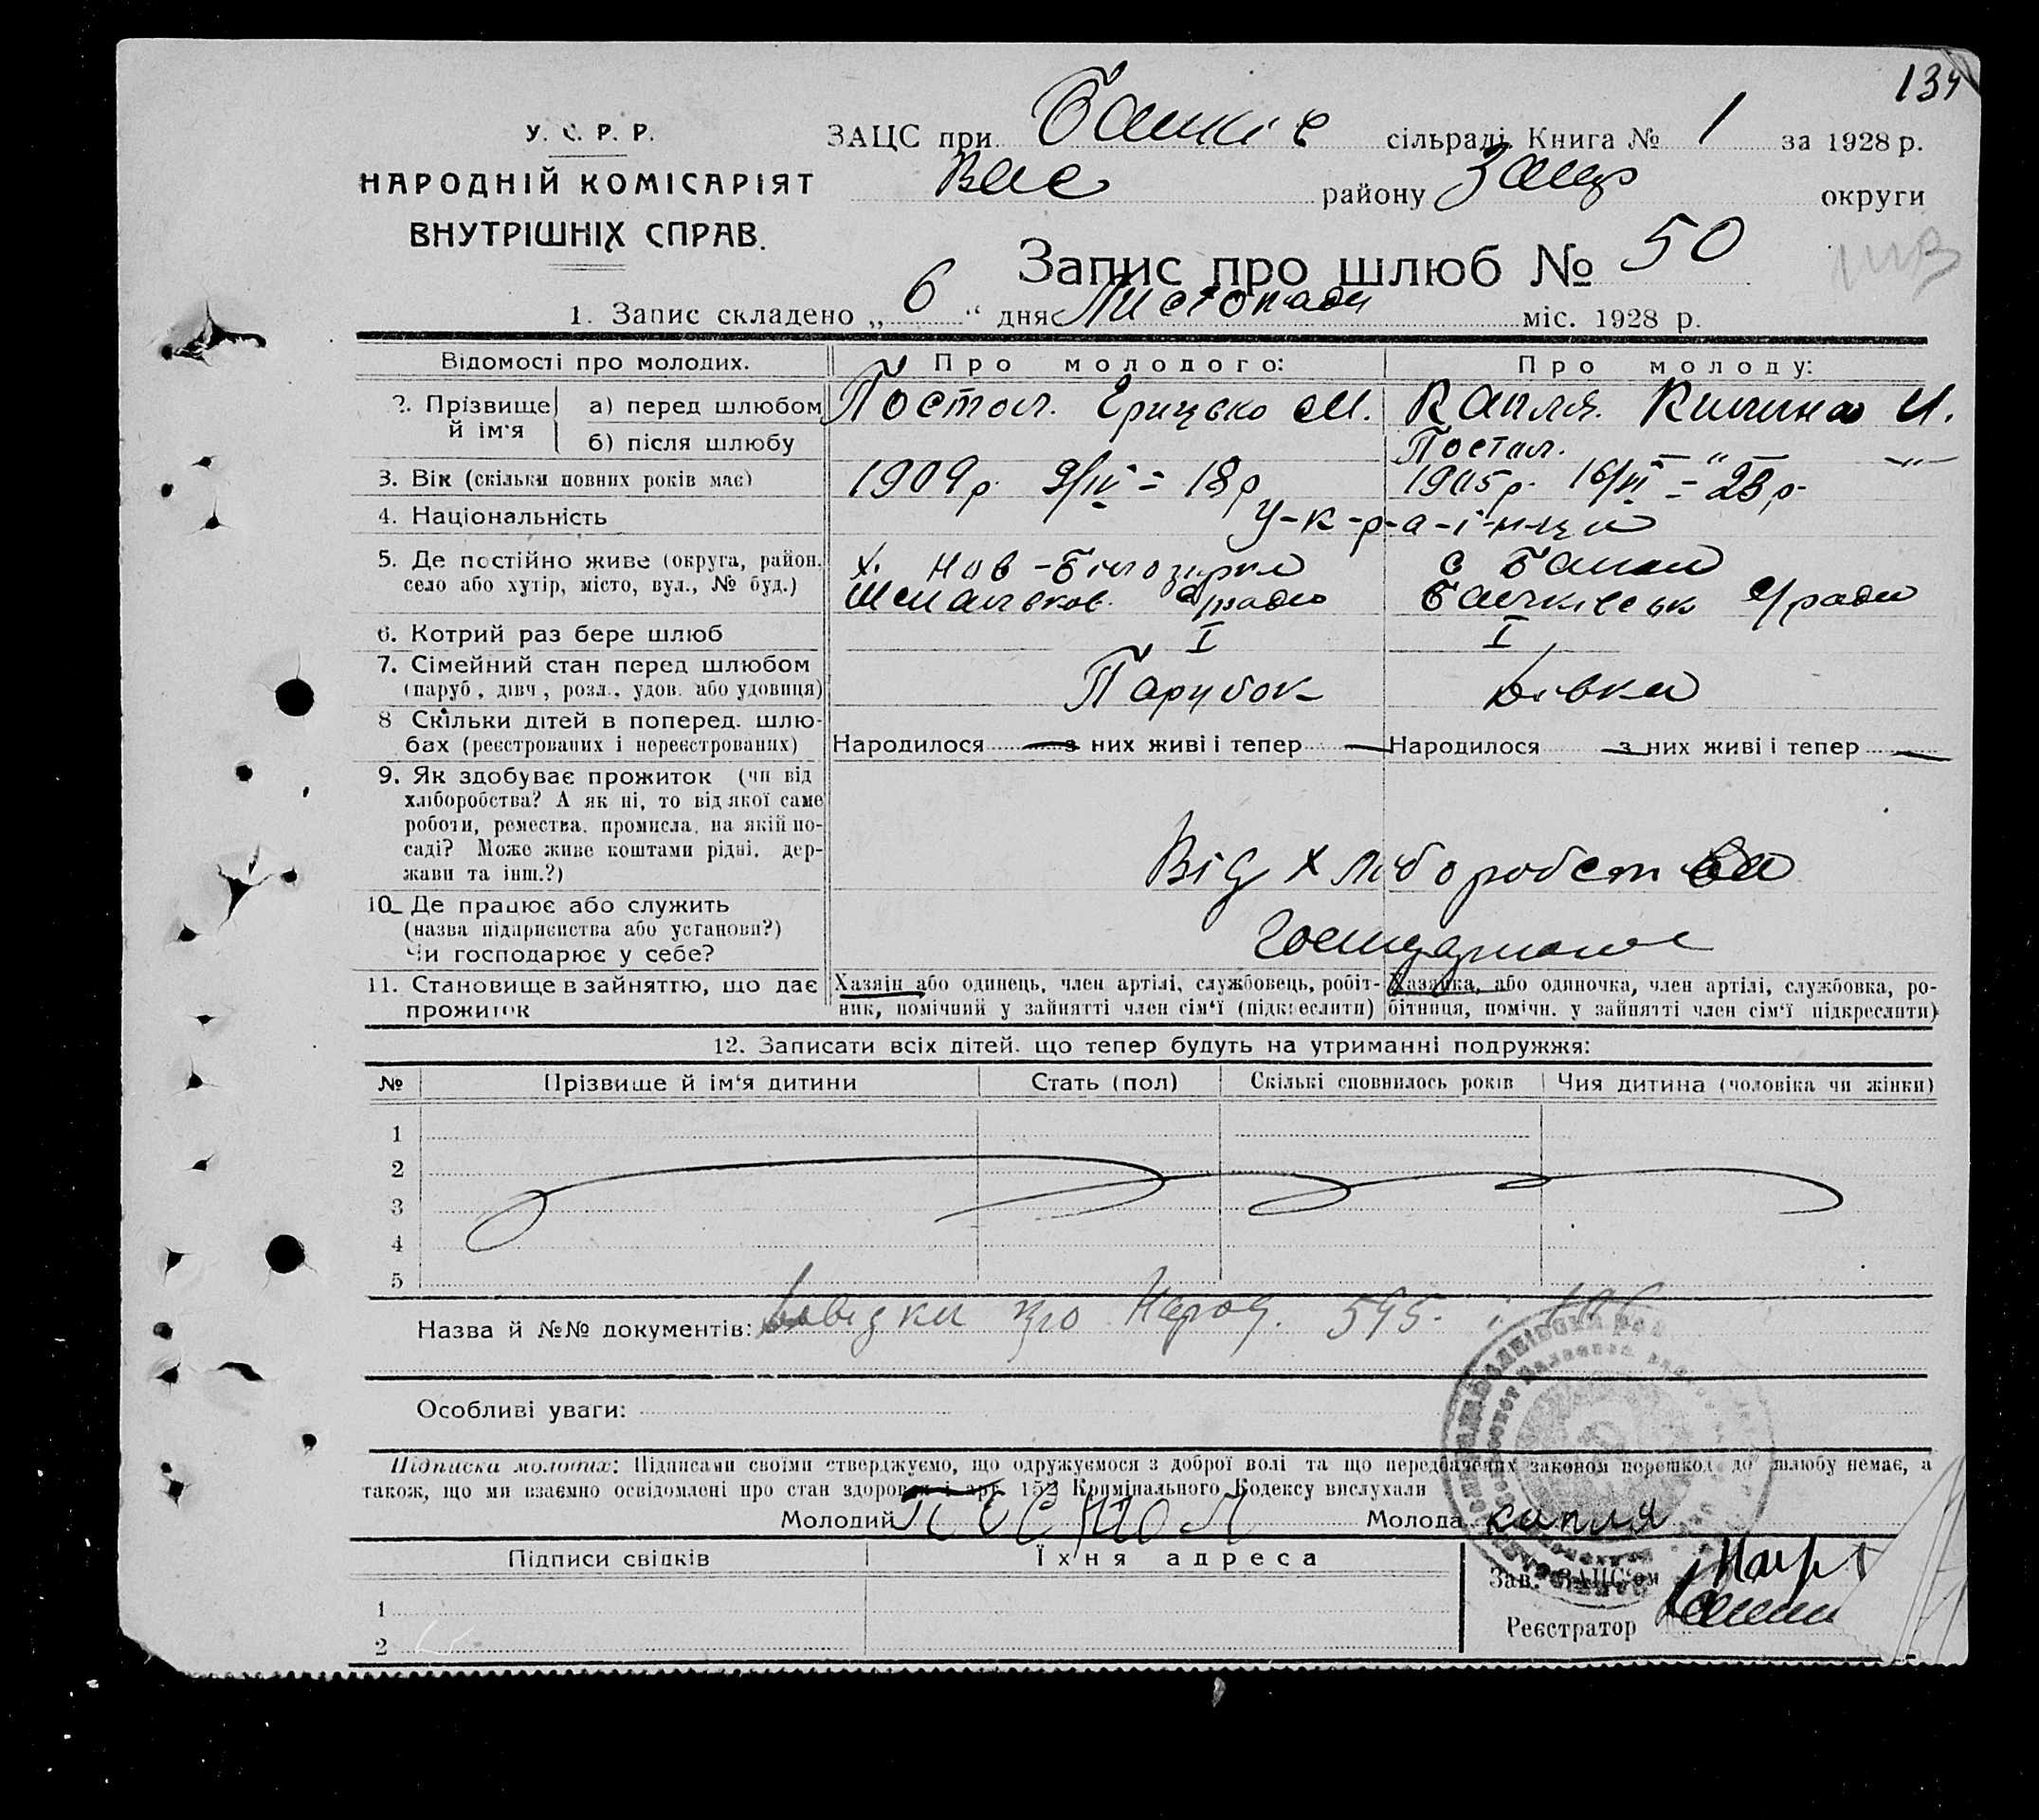 134
У. С. Р. Р.
НАРОДНІЙ КОМІСАРІЯТ
ВНУТРІШНІХ СПРАВ.
ЗАЦС при Башків сільраді. Книга № 1 за 1928 р.
Вас району Запор округи
Запис про шлюб № 50
1. Запис складено „ 6 “ дня Листопада міс. 1928 р.
Відомості про молодих. Про молодого: Про молоду:
2. Прізвище й ім'я а) перед шлюбом Постол. Грицько М. Капля. Килина И.
б) після шлюбу Постол. — „ — — „ —
3. Вік (скільки повних років має) 1909 р. 9/IV = 18 р 1905 р. 16/VI = 23 р.
4. Національність У-к-р-а-ї-н-ци
5. Де постійно живе (округа, район, х. Нов-Білозірка с Балки
село або хутір, місто, вул., № буд.) с/ради Балківськ с/ради
6. Котрий раз бере шлюб I I
7. Сімейний стан перед шлюбом Парубок Дівка
(паруб., дівч., розл., удов. або удовиця)
8 Скільки дітей в поперед. шлю-
бах (реєстрованих і нереєстрованих) Народилося — з них живі і тепер — Народилося — з них живі і тепер —
9. Як здобуває прожиток (чи від
хліборобства? А як ні, то від якої саме
роботи, ремества, промисла, на якій по-
саді? Може живе коштами рідні, дер- Від хліборобства
жави та інш.?)
10 Де працює або служить
(назва підприєнства або установи?)
Чи господарює у себе?
11. Становище в зайняттю, що дає Хазяїн або одинець, член артілі, службовець, робіт- Хазяйка, або одиночка, член артілі, службовка, ро-
прожиток ник, помічний у зайнятті член сім'ї (підкреслити) бітниця, помічн. у зайнятті член сім'ї підкреслити)
12. Записати всіх дітей, що тепер будуть на утриманні подружжя:
№ Прізвище й ім'я дитини Стать (пол) Скількі сповнилось років Чия дитина (чоловіка чи жінки)
1
2
3
4
5
Назва й №№ документів: Довідки про Народ. 595. і
Особливі уваги:
Підписка молодих: Підписами своїми стверджуємо, що одружуємося з доброї волі та що передбачених законом перешкод до шлюбу немає, а
також, що ми взаємно освідомлені про стан здоровя і арт. 152 Кримінального Кодексу вислухали
Молодий Постол Молода капля
Підписи свідків Їхня адреса
Зав. ЗАЦС'ом
1
Реєстратор
2